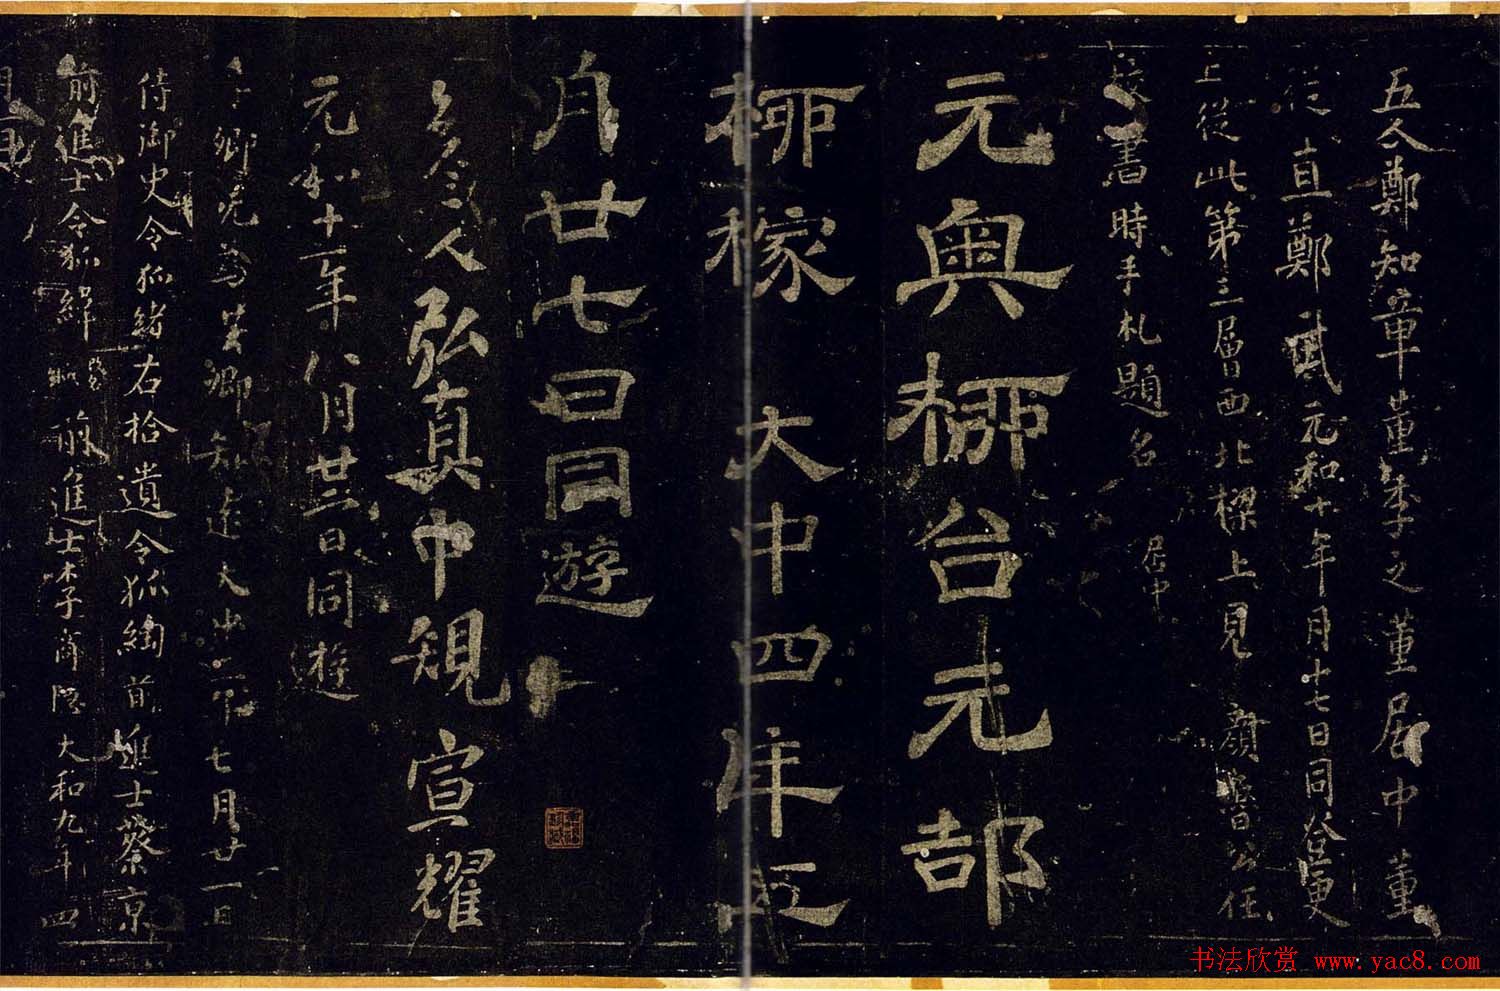 五人鄭知章董季之董居中董
從直鄭武元和十年月十七日同登更
上從此第三層西北樑上見顏魯公任
書時手札題名居中
元奧柳台元部
柳稼大中四年五
月廿七日同遊
人弘真中規宣耀
元和十二年八月廿二日同遊
卿知遠大中二年七月廿一日
侍御史令狐緒右拾遺令狐綯前進士蔡京
前進士令狐緯前進士李商隱大和九年四
月
书法欣赏 www.yac8.com